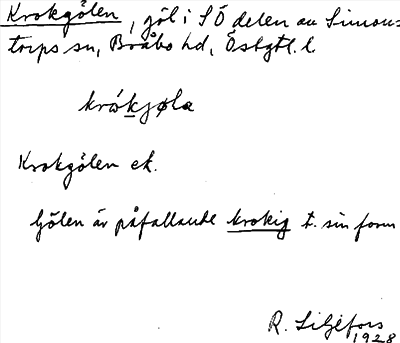 Krokgölen, göl i SÖ delen av Simons-
torps sn, Bråbo hd, Östgtl. l.
krókjøla
Krokgölen ek.
Gölen är påfallande krokig t. sin form
R. Liljefors
1928